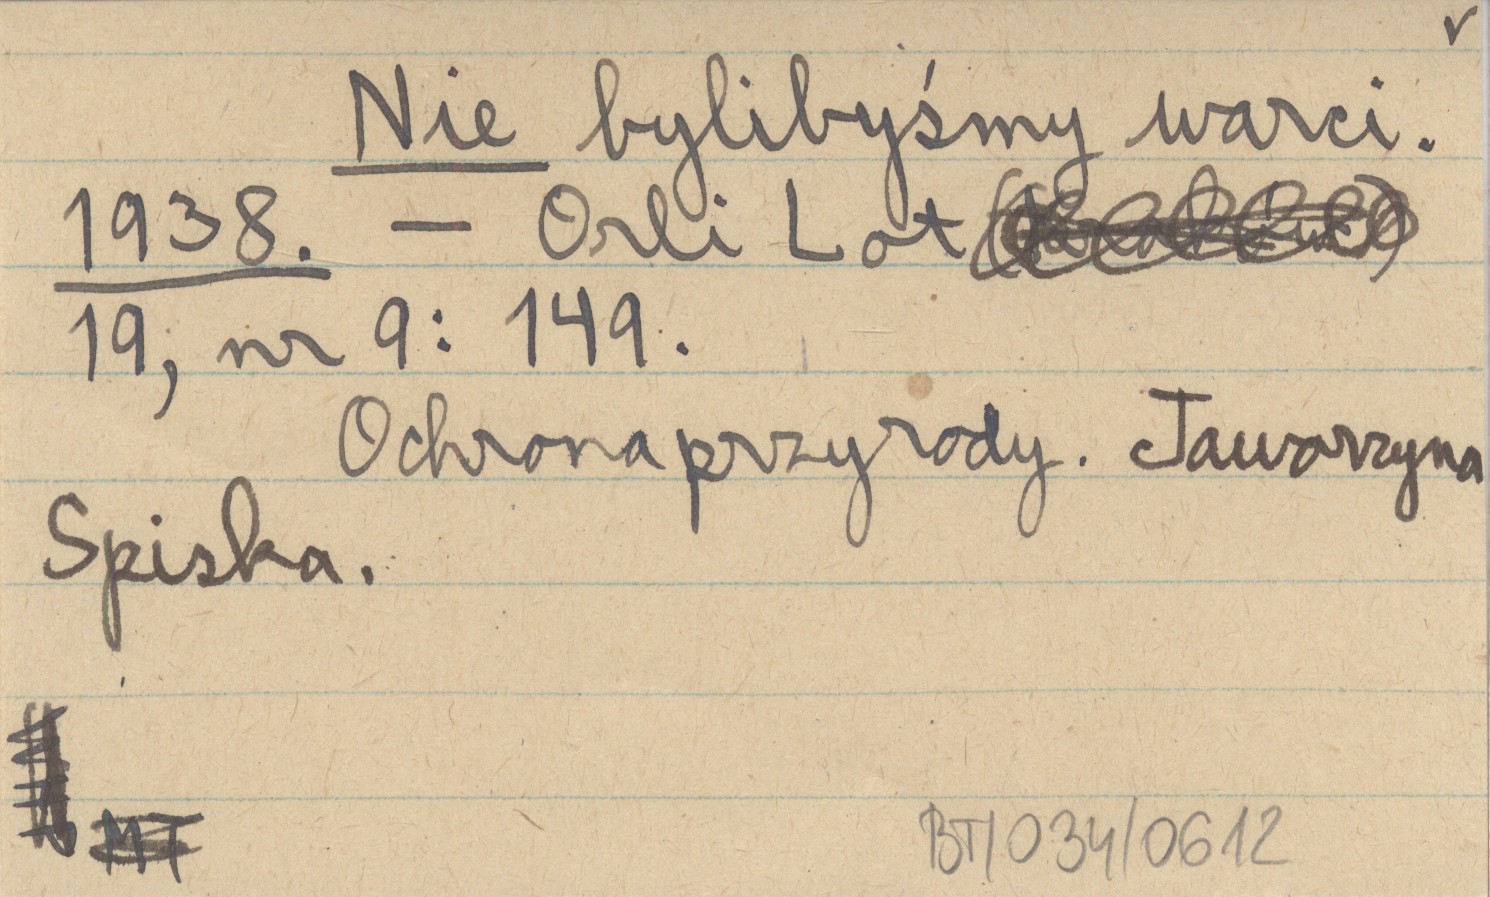 Nie bylibyśmy warci.
1938. — Orli Lot
19, nr 9: 149.
Ochrona przyrody. Jaworzyna
Spiska.
MT
BT/034/0612